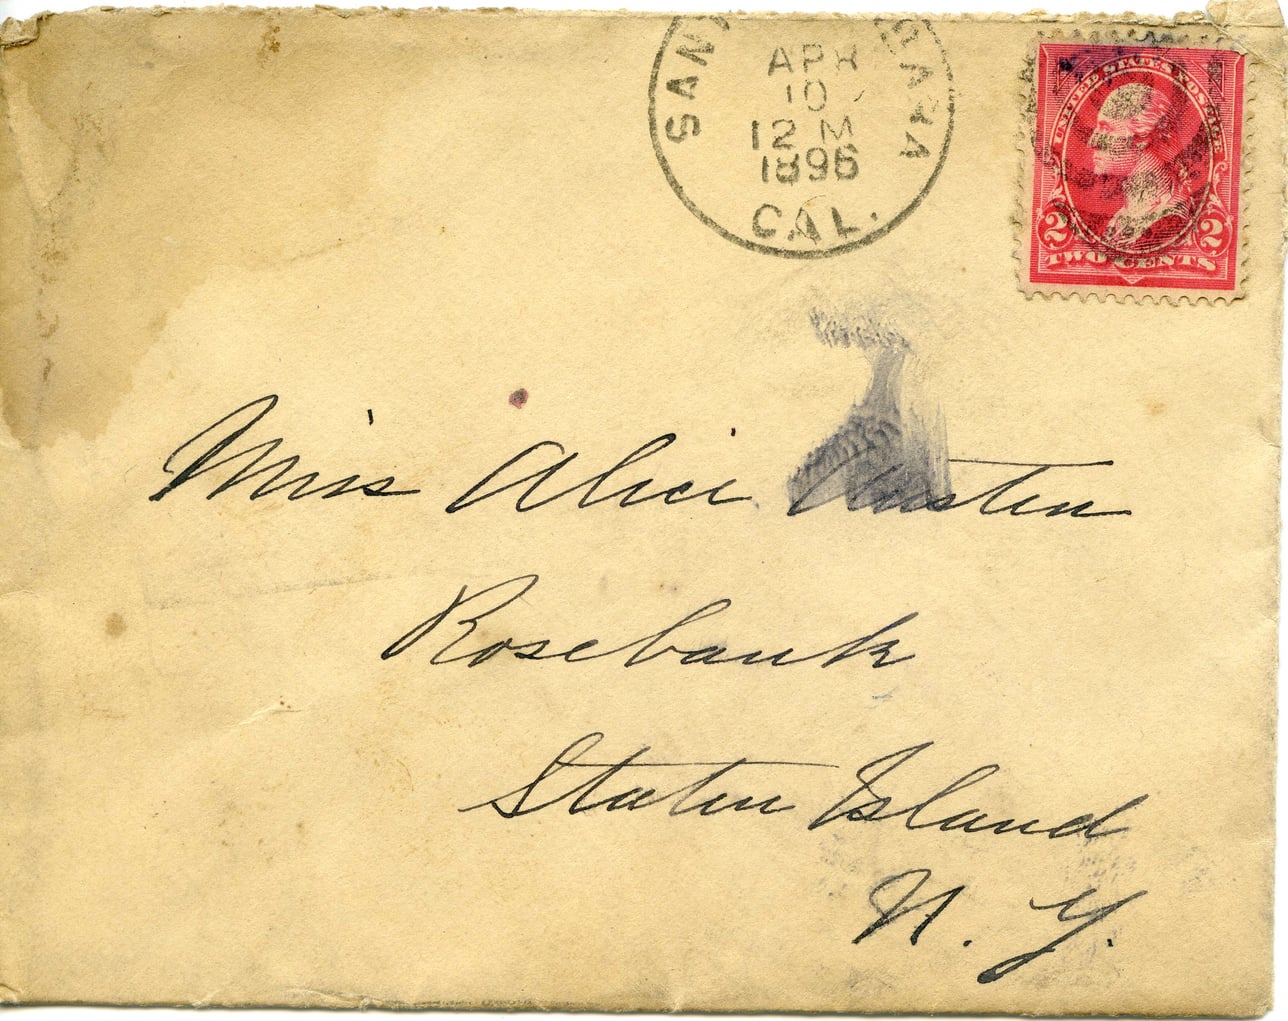 SANTA BARBARA
APR
10
12 M
1896
CAL.
UNITED STATES POSTAGE
2 2
TWO CENTS
Miss Alice Austen
Rosebank
Staten Island
N. Y.